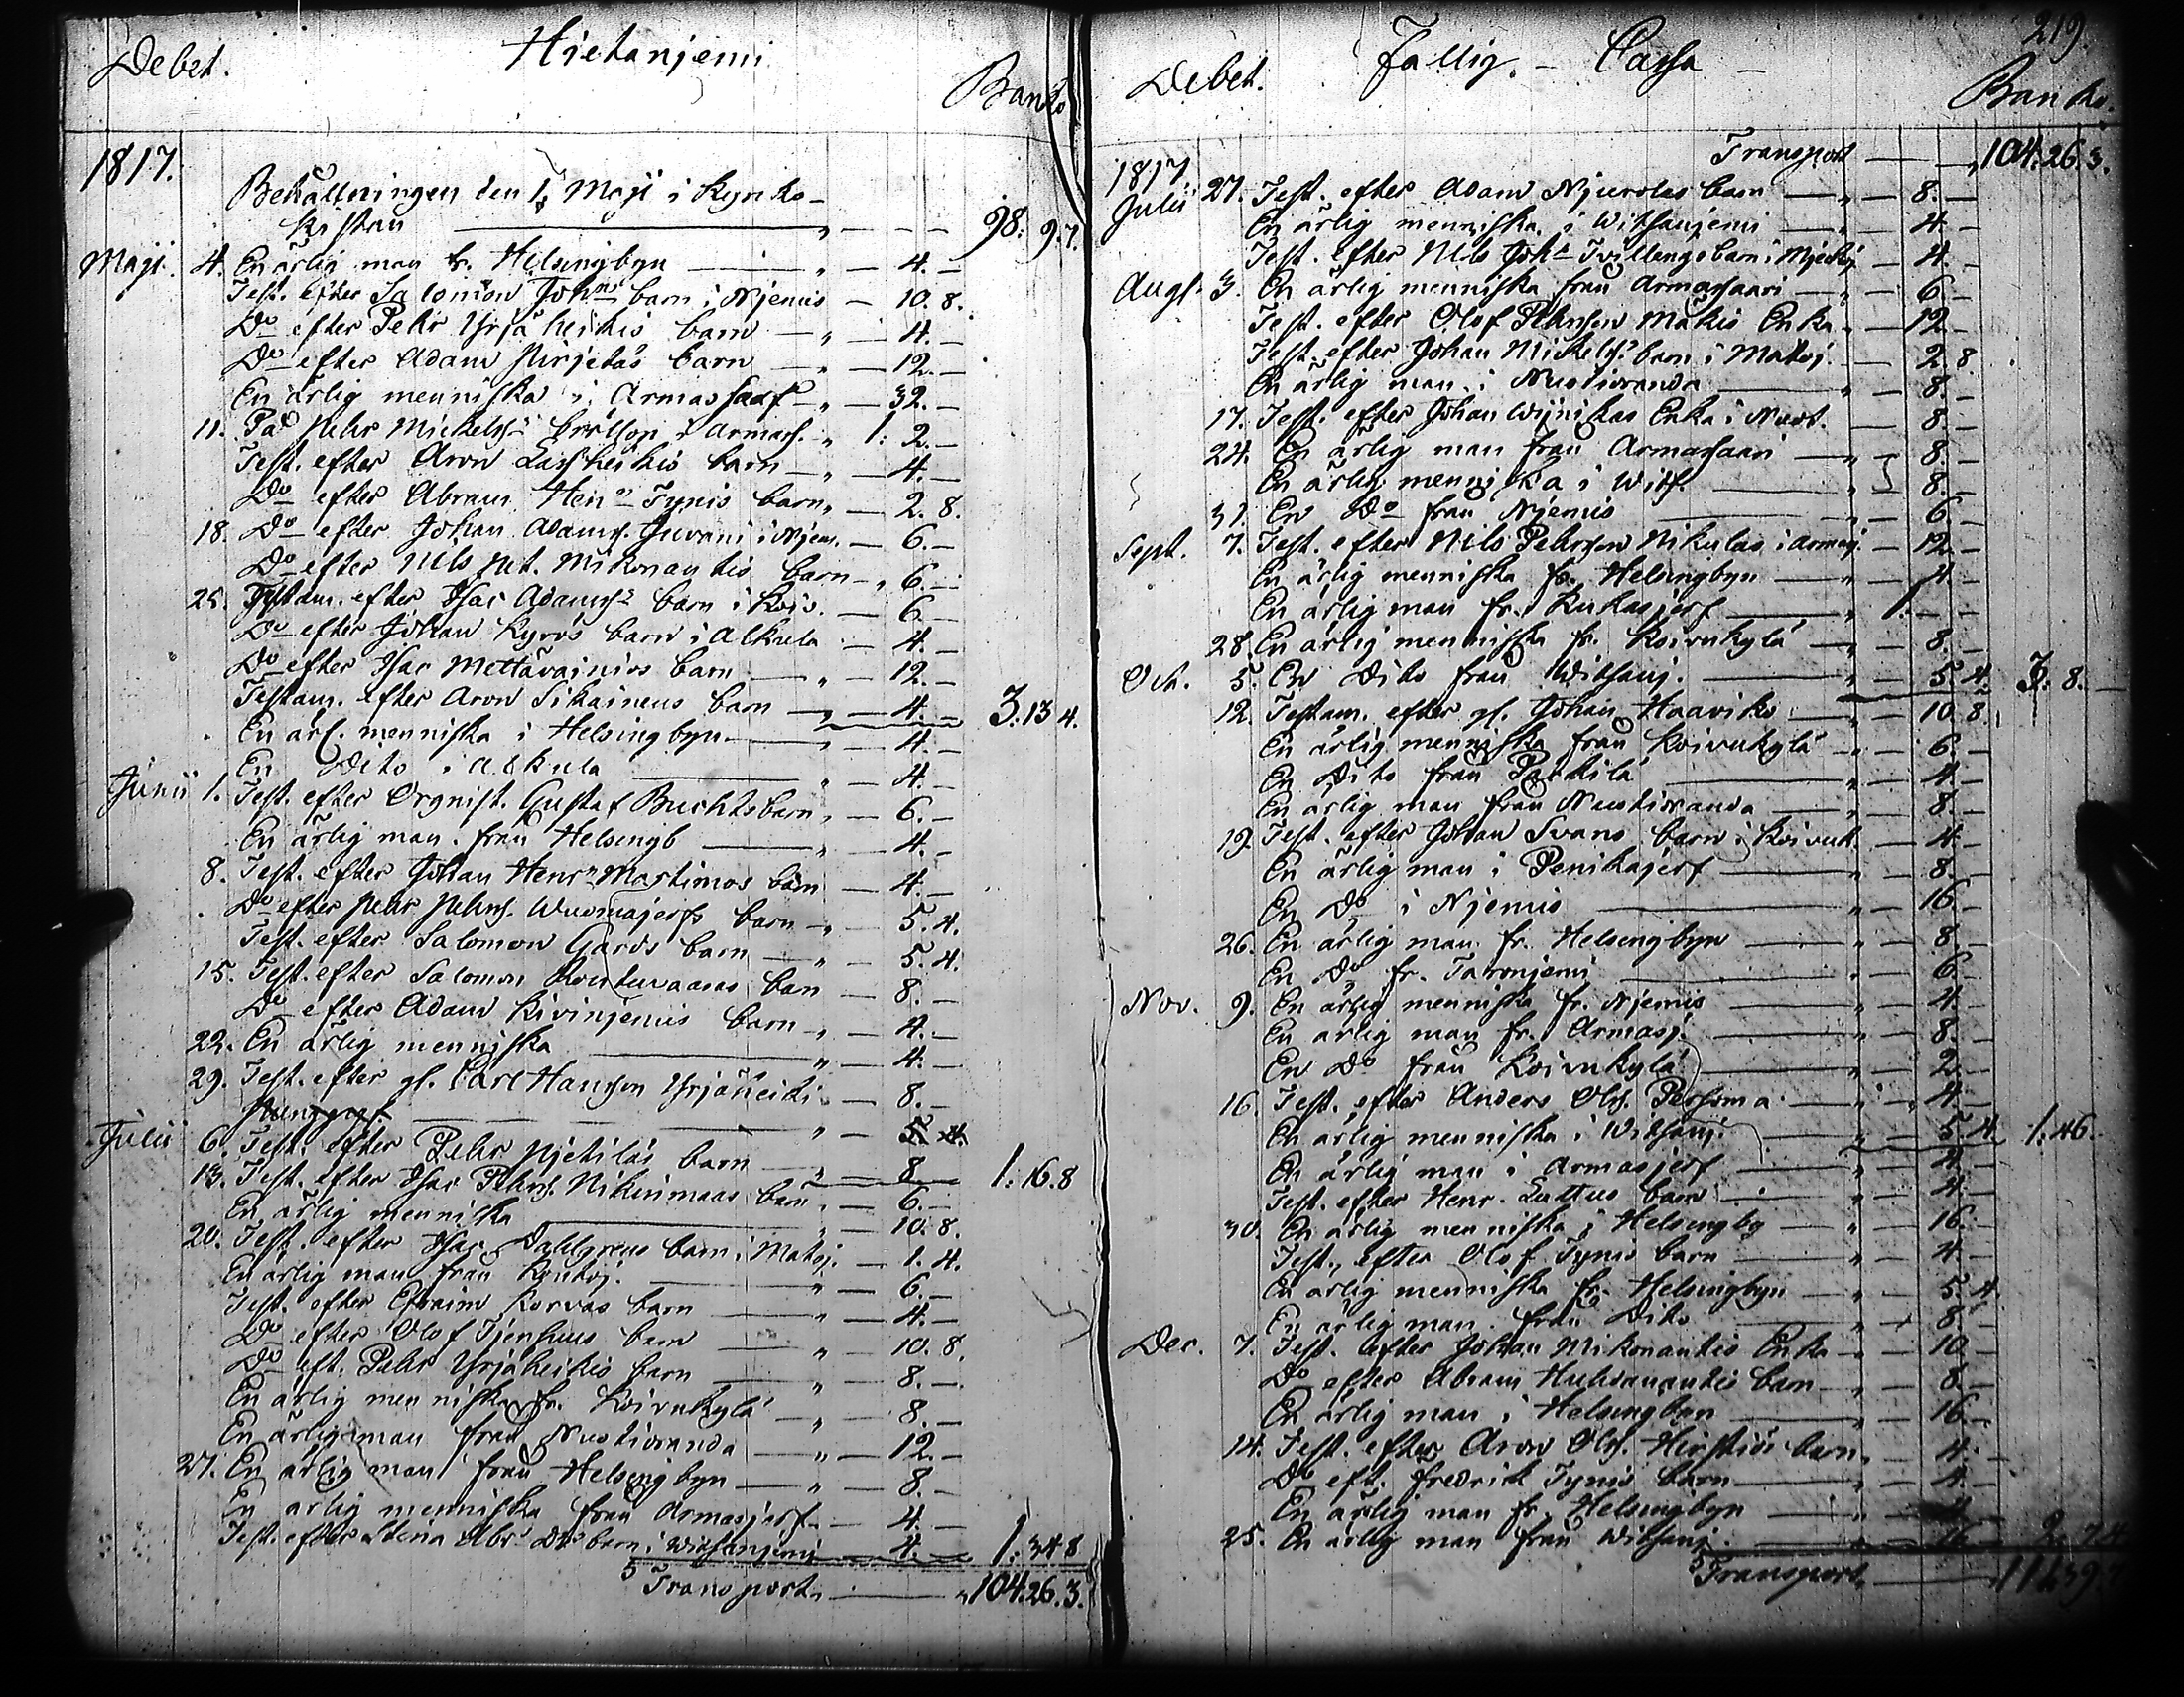 Debet. Hietaniemi Banko
1817.
Behållningen den 1. Maji i Kyrko-
kistan 98: 9.7.
Maji. 4. En ärlig man fr. Helsingbyn 4.
Test. efter Salomon Johns barn i Njemis 10. 8.
Do efter Pehr Yrjäheikis barn 4.
Do efter Adam barn 12.
En ärlig menniska i Armassaari 32.
11. Pehr Mickels. bröllop i Armass. 1: 2.
Test. efter Aron Lassheikis barn 4.
Do efter Abram Henr. Tynis barn 2. 8.
18. Do efter Johan Adams. Juvani i Njem. 6.
Do efter Nils Mikonantis barn 6.
25. Testam. efter Isac Adams. barn i Koiv. 6.
Do efter Johan Kyrös barn i Alkula 4.
Do efter Isac Mettävainios barn 12.
Testam. efter Aron Sikainens barn 4. 3:13 4.
En ärl. menniska i Helsingbyn 4.
En Dito i Alkula 4.
Junii 1. Test. efter Orgnist. Gustaf Buchts barn 6.
En ärlig man från Helsingb 4.
8. Test. efter Johan Henrs Martimos barn 4.
Do efter Pehr Pehrs. Wuomajerfs barn 5. 4.
Test. efter Salomon Gards barn 5. 4.
15. Test. efter Salomon barn 8.
Do efter Adam Kiviniemis barn 4.
22. En ärlig menniska 4.
29. Test. efter gl. Carl Hansson Yrjäheiki 8.
5. 4.
Julii 6. Test. efter Pehr Njetiläs barn 8 1:16.8
13. Test. efter Isac Pehrs. Nikinmaas barn 6.
En ärlig menniska 10. 8.
20. Test. efter Isac Dahlgrens barn i Matoj. 1. 4.
En ärlig man från 6.
Test. efter Efraim Korvas barn 4.
Do efter Olof barn 10. 8.
Do eft. Pehr Yrjäheikis barn 8.
En ärlig menniska fr. Koivukylä 8.
En ärlig man från Nuotioranda 12.
27. En ärlig man från Helsingbyn 8.
En ärlig menniska från Armasjerf 4.
Test. efter Stina Abr. Dr barn i Witsanjemi 4. 1:34 8
Transport 104.26.3.
219
Debet. Fattig- Cassa Banko.
1817 Transport 104.26.3.
Julii 27. Test. efter Adam Njurolas barn 8.
En ärlig menniska i Witsanjemi 4.
Test. efter Nils Johs Tvillings barn i 4.
Augs. 3. En ärlig menniska från Armassaari 6
Test. efter Olof Pehrsson Mäkis Enka 12
Test. efter Johan Mickels. barn i Matoj. 2 8.
En ärlig man i Nuotioranda 8.
17. Test. efter Johan Wijnikas Enka i Nuot. 8
24. En ärlig man från Armassaari 8.
En ärlig menniska i Wits. 8.
31. En Do från Njemis 6.
Sept. 7. Test. efter Nils Pehrsson Nikulas i Armasj. 12.
En ärlig menniska fr. Helsingbyn 4.
En ärlig man fr. Kukasjerf 1:
28. En ärlig menniska fr. Koivukylä 8.
Oct. 5. En Dito från Witsanj. 5 4. 3: 8.
12. Testam. efter gl. Johan Haaviko 10 8.
En ärlig menniska från Koivukylä 6.
En Dito från 4.
En ärlig man från Nuotioranda 8.
19. Test. efter Johan Svans barn i Koivuk. 4.
En ärlig man i Penikajerf 8.
En Do i Njemis 16.
26. En ärlig man fr. Helsingbyn 8
En Do fr. Taroniemi 6.
Nov. 9. En ärlig menniska fr. Njemis 4.
En ärlig man fr. Armasj. 8.
En Do från Koivukylä 2.
16. Test. efter Anders Ols. 4.
En ärlig menniska i Witsanj. 5 4. 1:46.
En ärlig man i Armasjerf 4.
Test. efter Henr. Luttus barn 4.
30. En ärlig menniska i Helsingby 16.
Test. efter Olof Tynis barn 4.
En ärlig menniska fr. Helsingbyn 5. 4.
En ärlig man från Dito 8.
Dec. 7. Test. efter Johan Mikonantis Enka 10
Do efter Abram Huhdanantis barn 8.
En ärlig man i Helsingbyn 16.
14. Test. efter Aron Ols. barn 4.
Do eft. Fredrick Tynis barn 4.
En ärlig man fr. Helsingbyn
25. En ärlig man från Witsanj. 16 2. 7 4
Transport